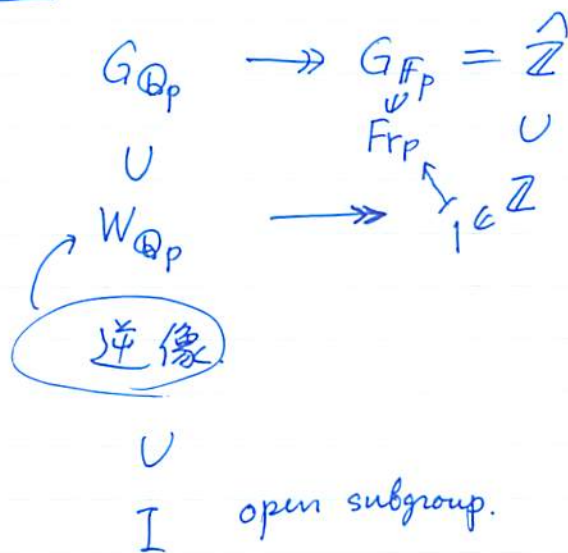 G_{ℚ_p} ↠ G_{𝔽_p} = \hat{ℤ}
∪ Fr_p ∪
W_{ℚ_p} ↠ 1 ∈ ℤ
逆像
∪
I open subgroup.